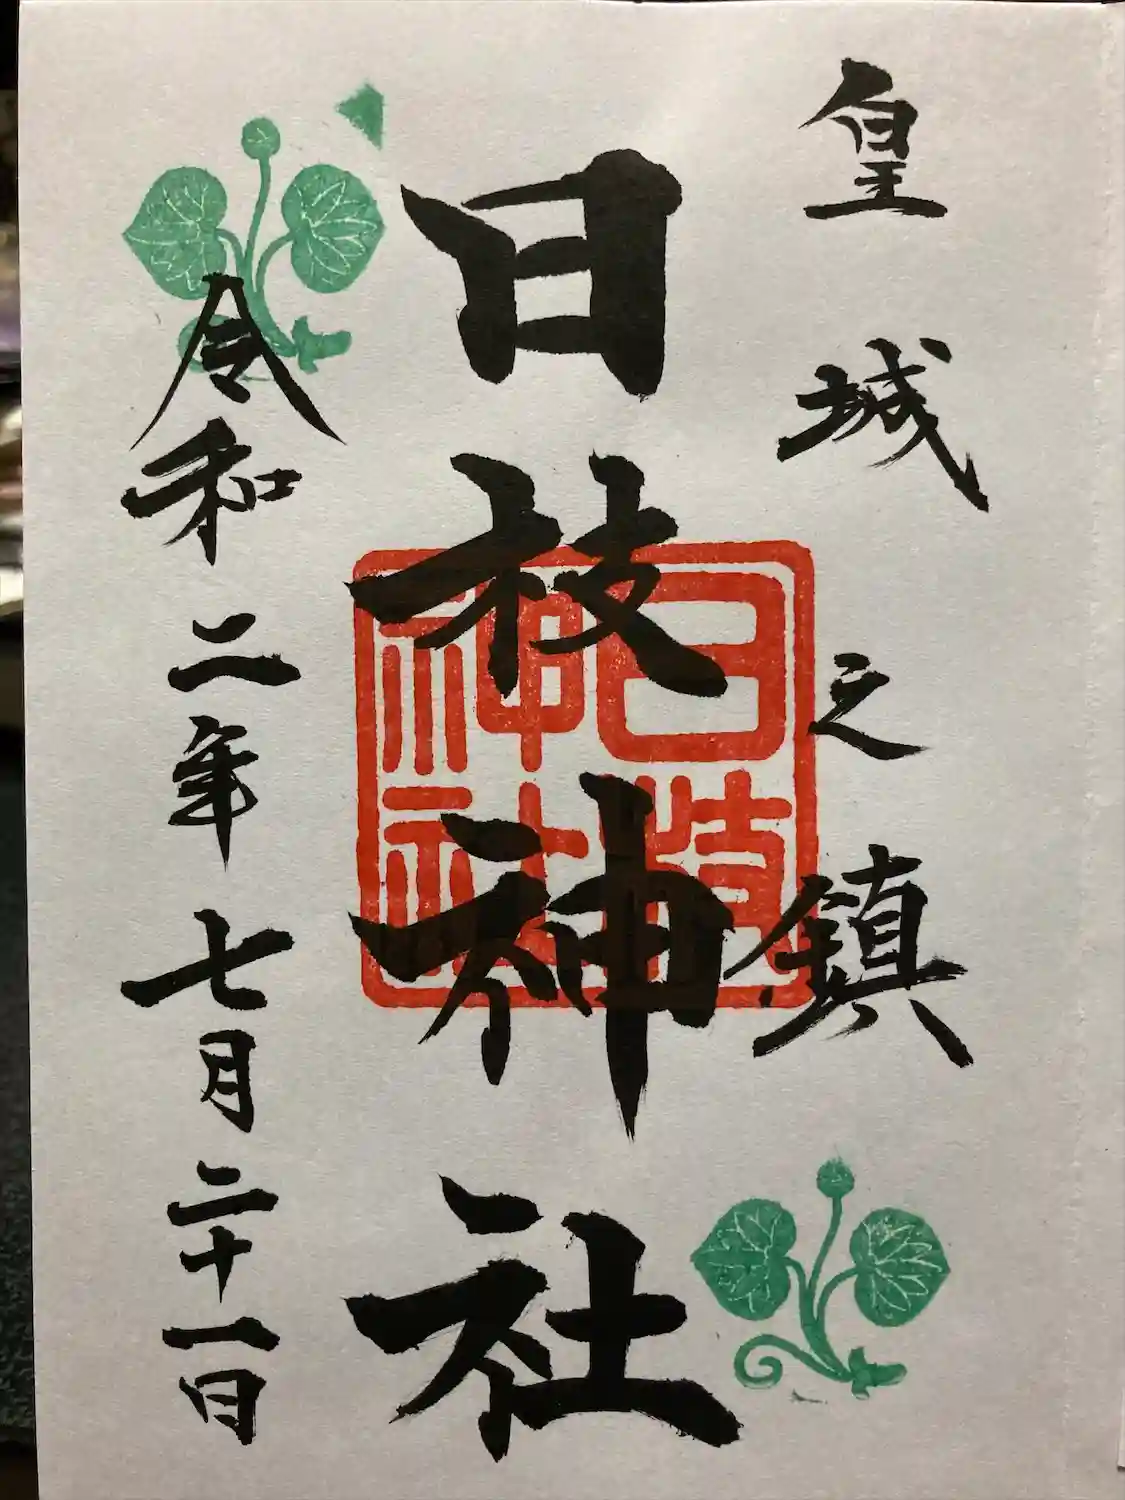 皇城之鎮
日枝神社
日枝神社
令和二年七月二十一日